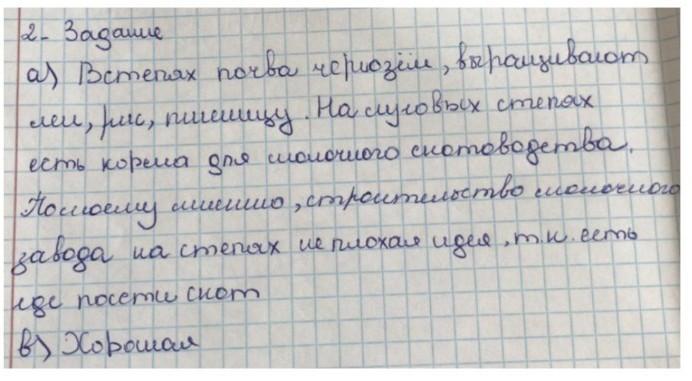 2- Задание
а) Встепях почва чернозём, выращивают
лен, рис, пшеницу. На луговых степях
есть корма для молочного скотоводства.
Помоему мнению, строительство молочного
завода на степях не плохая идея, т.к. есть
где посети скот
в) Хорошая